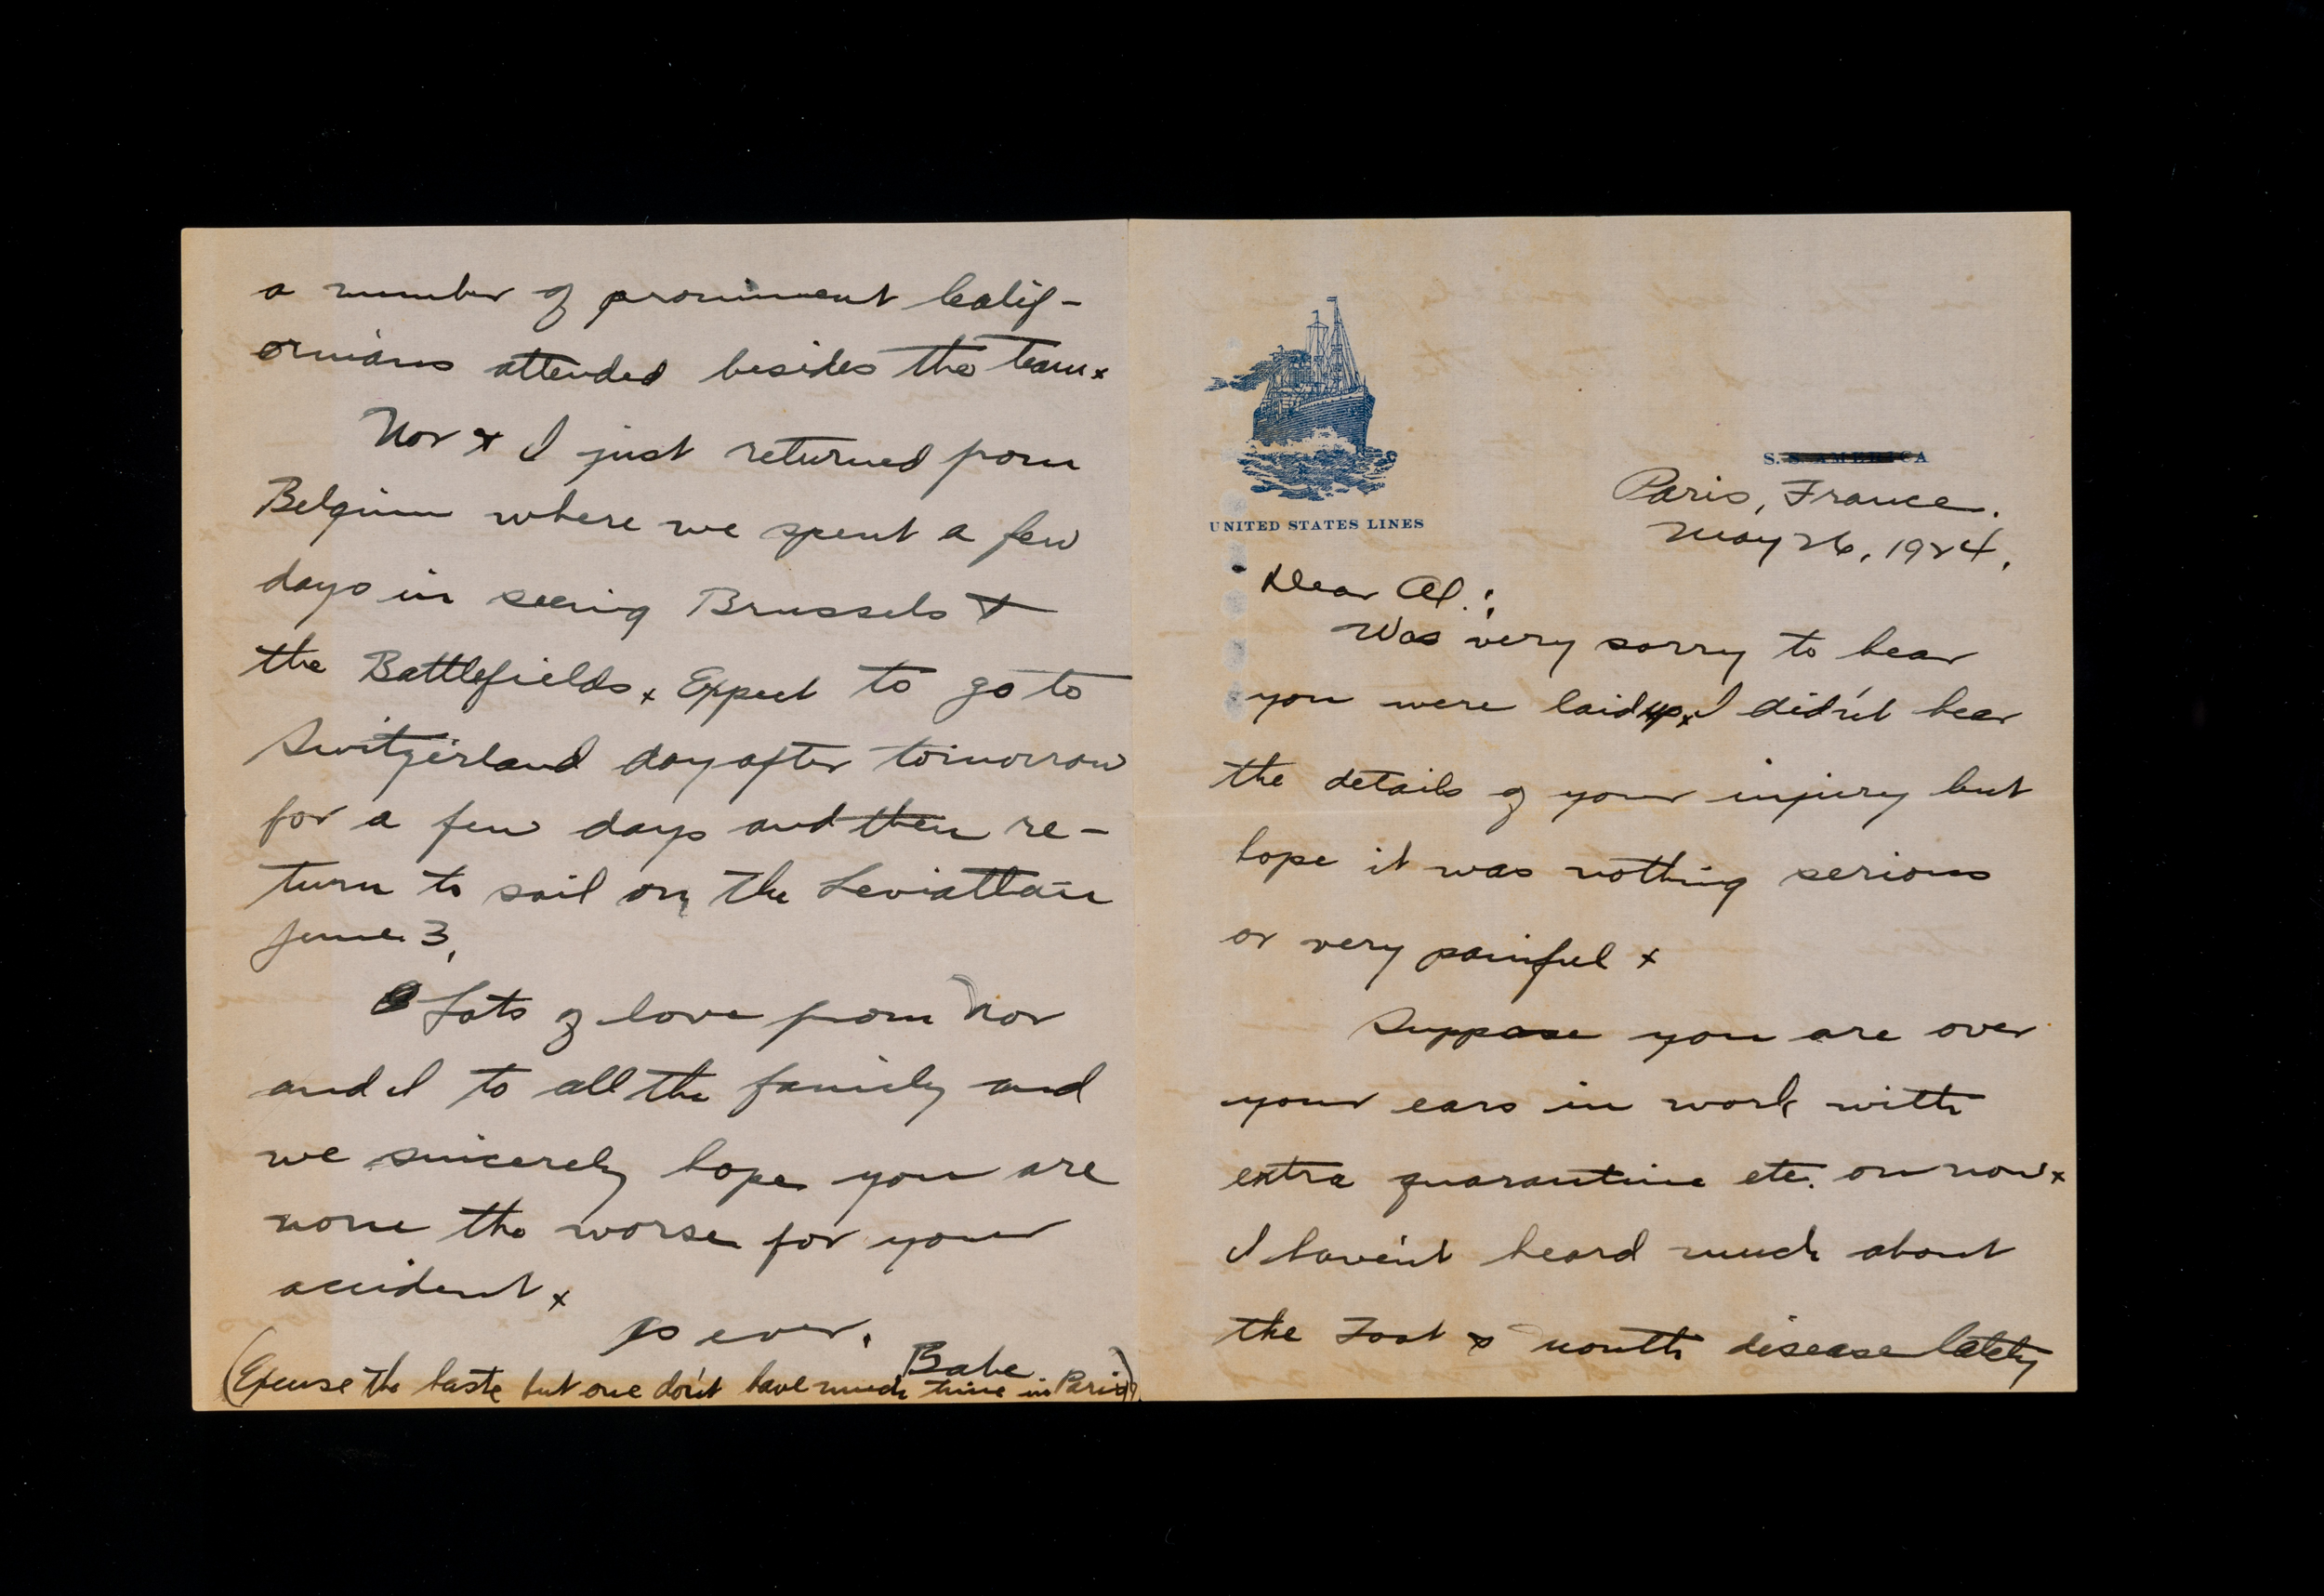 UNITED STATES LINES
S. S. AMERICA
Paris, France.
May 26, 1924.
Dear Al.:
Was very sorry to hear
you were laid up x I didn't hear
the details of your injury but
hope it was nothing serious
or very painful x
Suppose you are over
your ears in work with
extra quarantine etc. on now x
I haven't heard much about
the Foot & mouth disease lately
a number of prominent Calif-
ornians attended besides the team x
Nor & I just returned from
Belgium where we spent a few
days in seeing Brussels &
the Battlefields x Expect to go to
Switzerland day after tomorrow
for a few days and then re-
turn to sail on the Leviathan
June 3.
Lots of love from Nor
and I to all the family and
we sincerely hope you are
none the worse for your
accident x
As ever,
Babe
(Excuse the haste but one don't have much time in Paris)